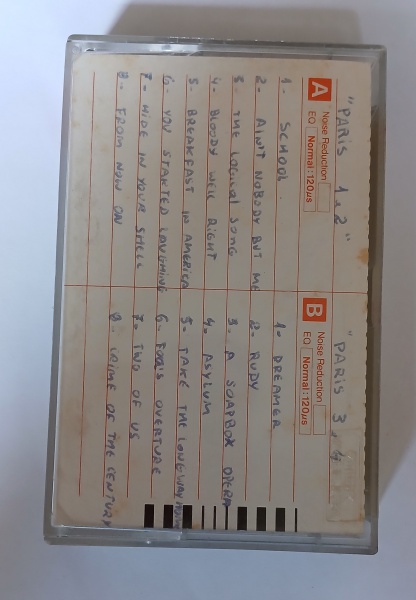 "PARIS 1 e 2"
A
Noise Reduction
EQ Normal:120μs
1- SCHOOL.
2- AIN'T NOBODY BUT ME
3- THE LOGICAL SONG
4- BLOODY WELL RIGHT
5- BREAKFAST IN AMERICA
6- YOU STARTED LAUGHING
7- HIDE IN YOUR SHELL
8- FROM NOW ON
"PARIS 3 e 4
B
Noise Reduction
EQ Normal:120μs
1- DREAMER
2- RUDY
3- A SOAPBOX OPERA
4- ASYLUM
5- TAKE THE LONG WAY
6- FOOL'S OVERTURE
7- TWO OF US
8- CRIME OF THE CENTURY